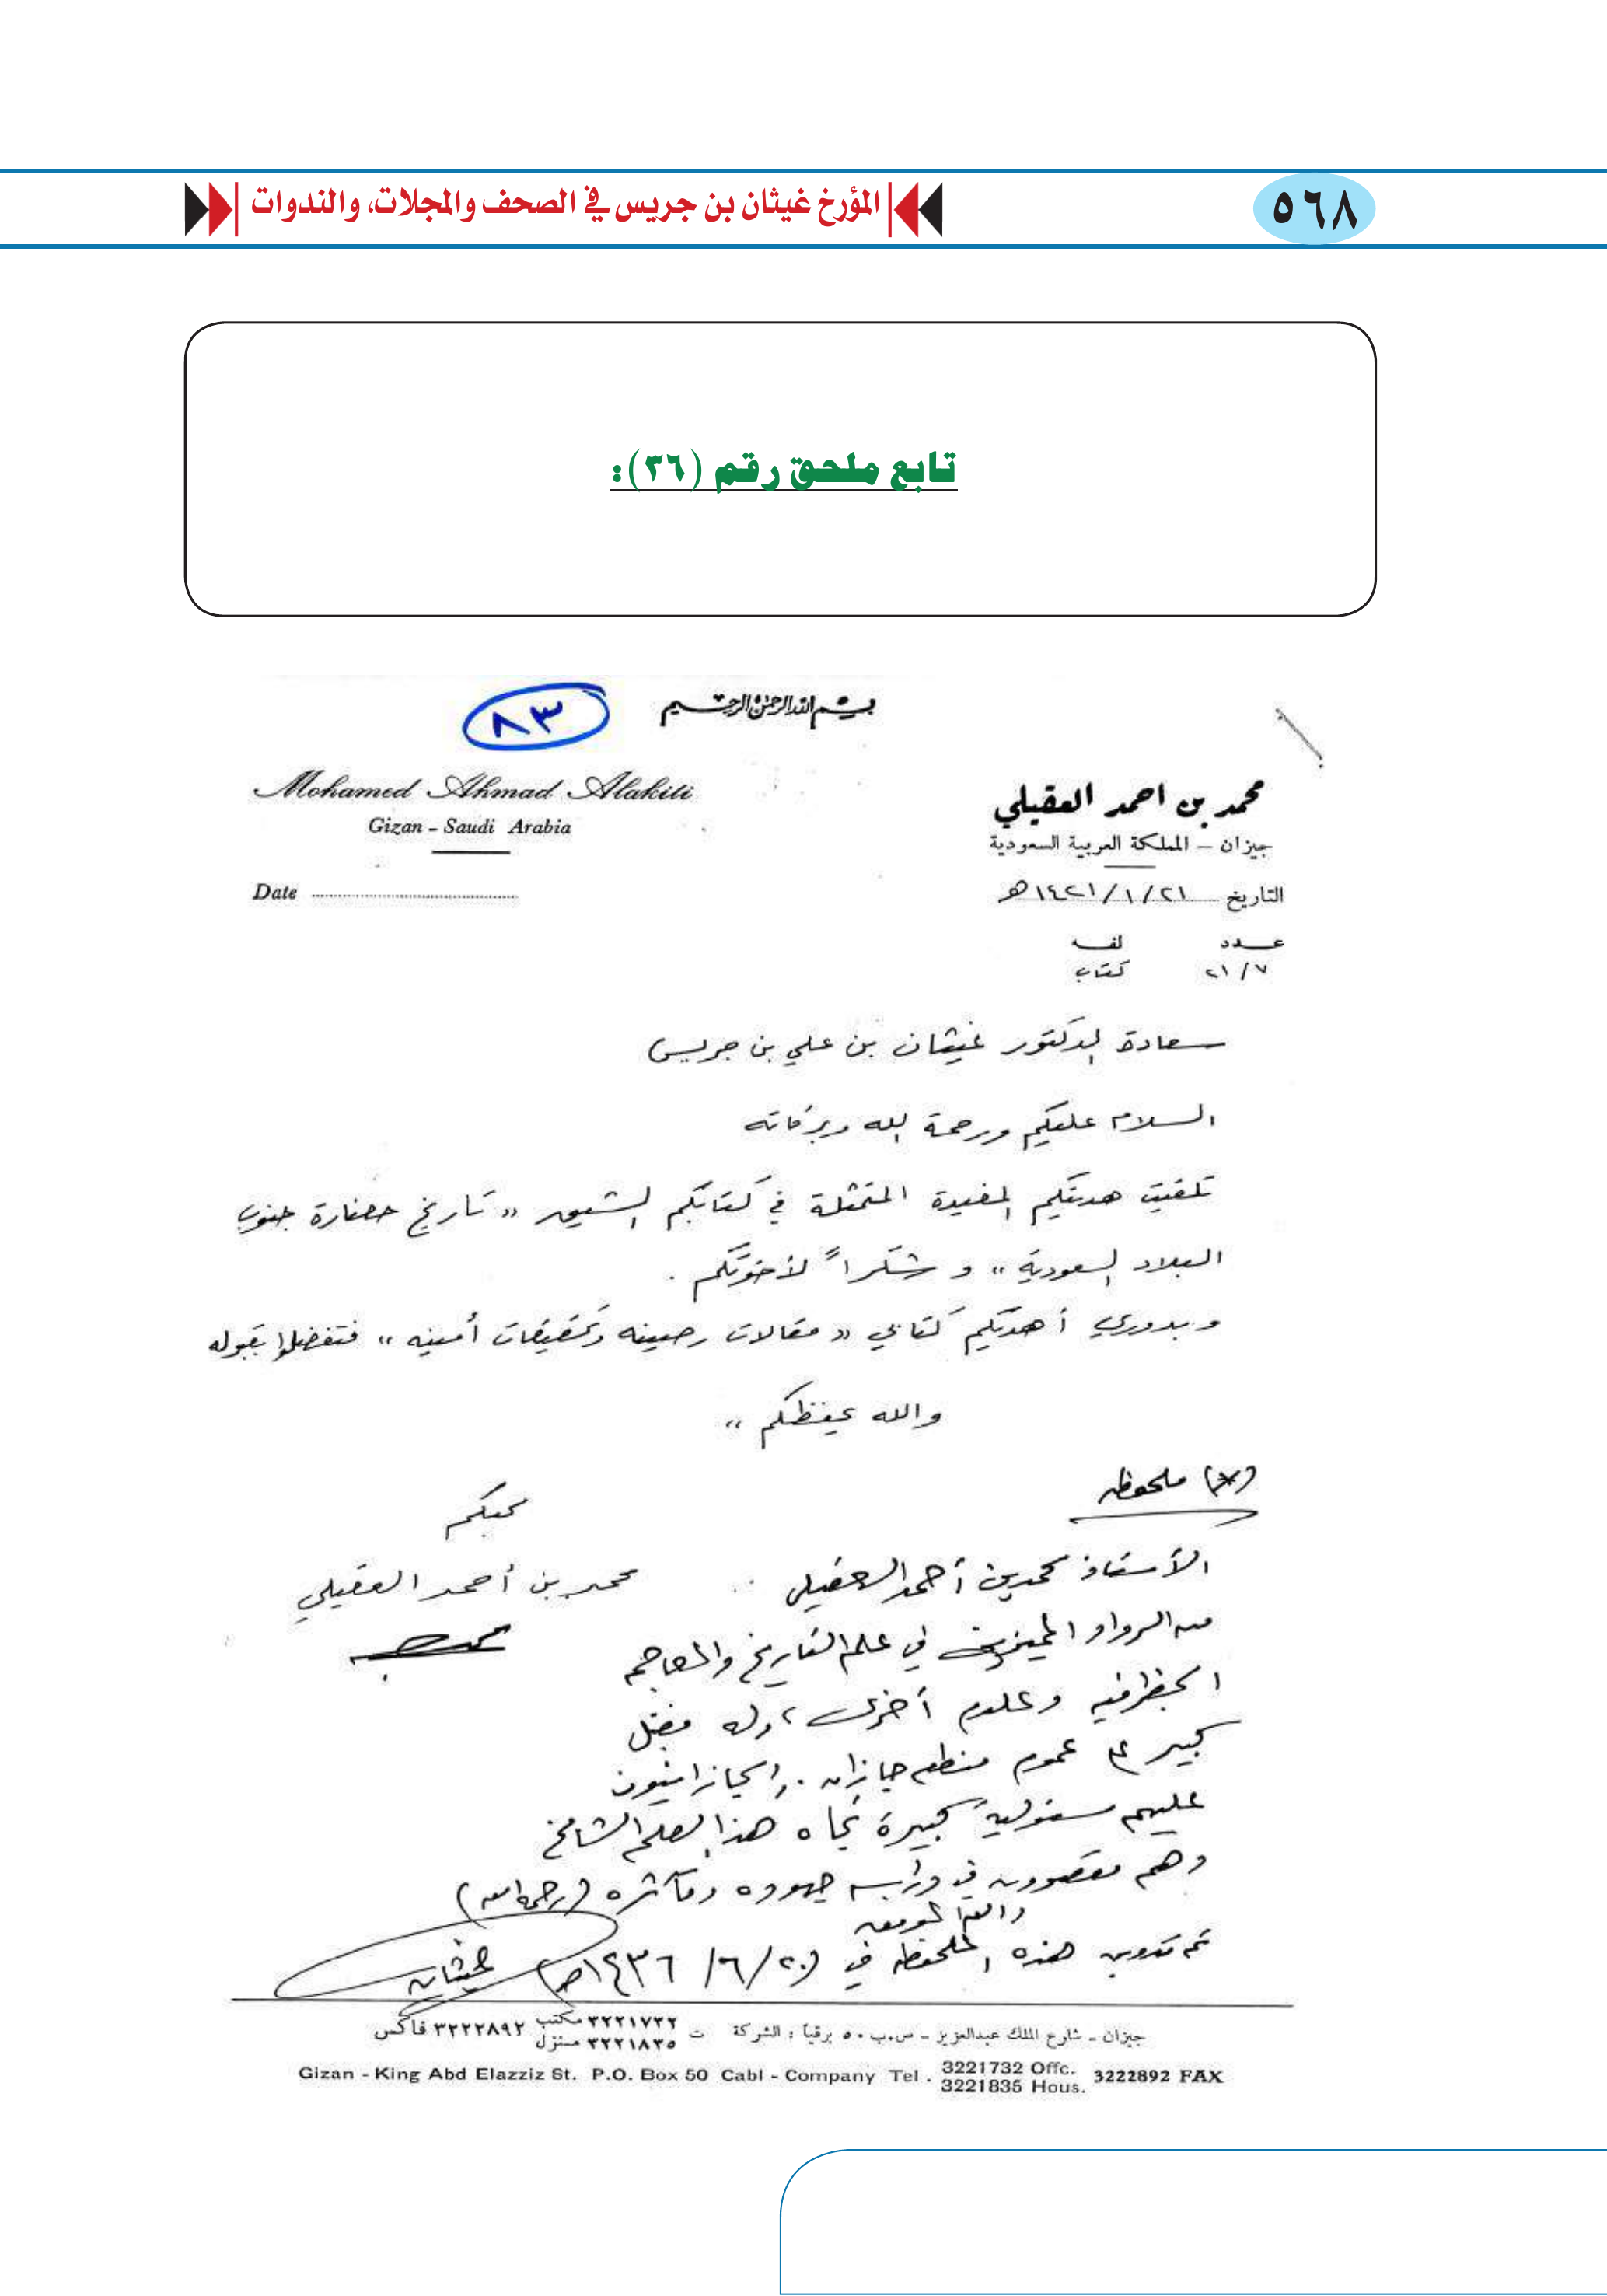 ٥٦٨
المؤرخ غيثان بن جريس في الصحف والمجلات، والندوات
تابع ملحق رقم (٣٦):
بسم الله الرحمن الرحيم
٨٣
Mohamed Ahmad Alakili
Gizan - Saudi Arabia
Date
محمد بن احمد العقيلي
جيزان – المملكة العربية السعودية
التاريخ ١٤٢١/١/٢١هـ
عدد لفه
٢١/٧ كتاب
سعادة الدكتور غيثان بن علي بن جريس
السلام عليكم ورحمة الله وبركاته
تلقيت هديتكم المفيدة المتمثلة في كتابكم الشيق «تاريخ حضارة جنوب
البلاد السعودية» و شكراً لأخوتكم .
وبدوري أهديكم كتابي «مقالات رصينه وتحقيقات أمنيه» فتفضلوا بقبوله
والله يحفظكم ،،
محبكم
محمد بن أحمد العقيلي
(*) ملحوظه
الأستاذ محمد بن أحمد العقيلي
من الرواد المميزين في علم التاريخ والمعاجم
الجغرافيه وعلوم أخرى، وله فضل
كبير على عموم منطقه جازان . والجازانيون
عليهم مسئولية كبيرة تجاه هذا العلم الشامخ
وهم مقصرون في دراسه جهوده ومآثره (رحمه الله)
والله الموفق
تم تدوين هذه الملحوظه في (٢٠/٦/١٤٣٦هـ)
غيثان
جيزان ـ شارع الملك عبدالعزيز ـ ص.ب ٥٠ برقياً : الشركة ت ٣٢٢١٧٣٢ مكتب ٣٢٢٢٨٩٢ فاكس
٣٢٢١٨٣٥ منزل
Gizan - King Abd Elazziz St. P.O. Box 50 Cabl - Company Tel . 3221732 Offc. 3222892 FAX
3221835 Hous.